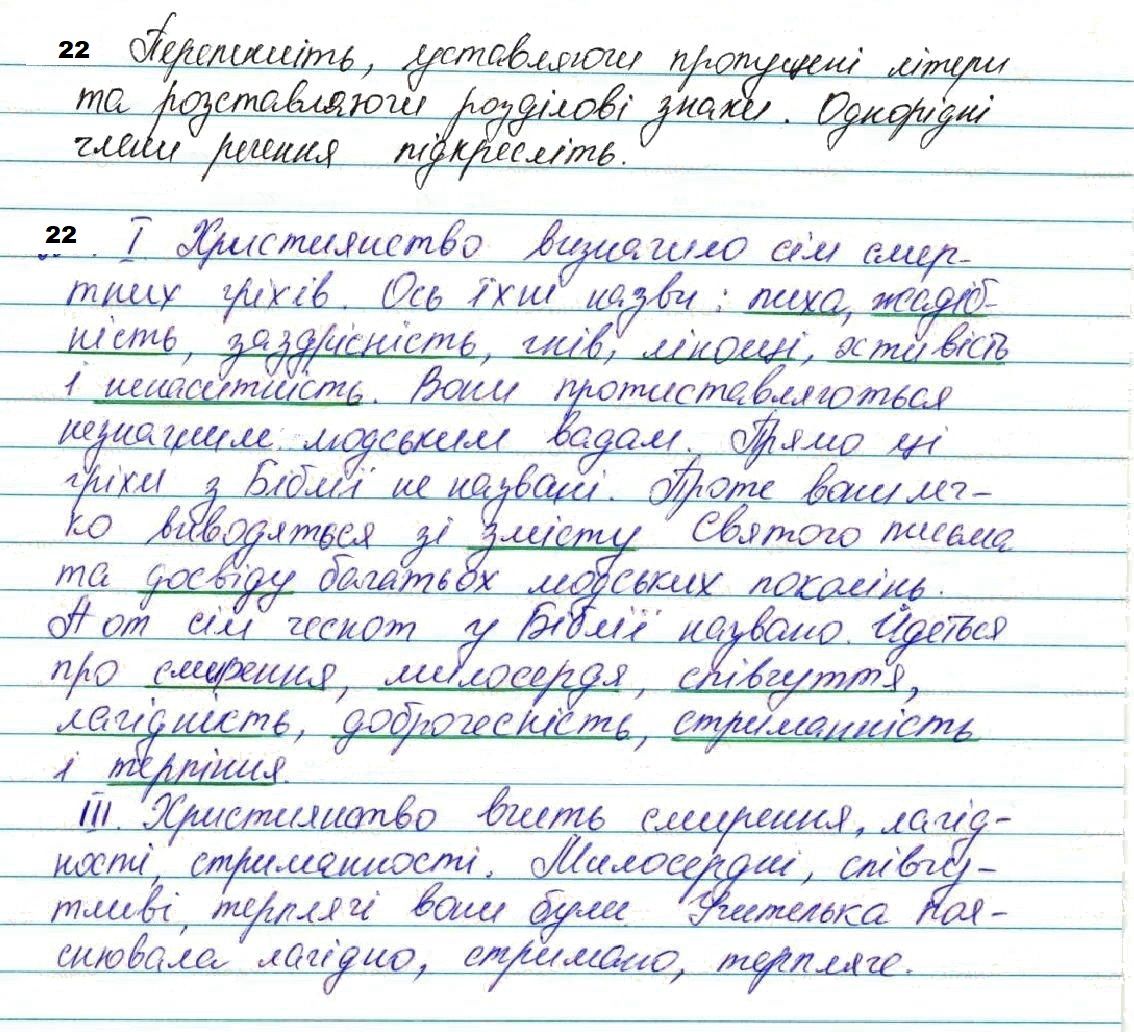 22 Перепишіть, уставляючи пропущені літери
та розставляючи розділові знаки. Однорідні
члени речення підкресліть.
22 I Християнство визначило сім смер-
тних гріхів. Ось їхні назви: пиха, жадіб-
ність, заздрісність, гнів, лінощі, хтивість
і ненаситність. Вони протиставляються
незначним людським вадам. Прямо ці
гріхи з Біблії не названі. Проте вони лег-
ко виводяться зі змісту Святого письма
та досвіду багатьох людських поколінь.
А от сім чеснот у Біблії названо. Йдеться
про смирення, милосердя, співчуття,
лагідність, доброчесність, стриманність
і терпіння.
III. Християнство вчить смирення, лагід-
ності, стриманності. Милосердні, співчу-
тливі, терплячі вони були. Учителька поя-
снювала лагідно, стримано, терпляче.